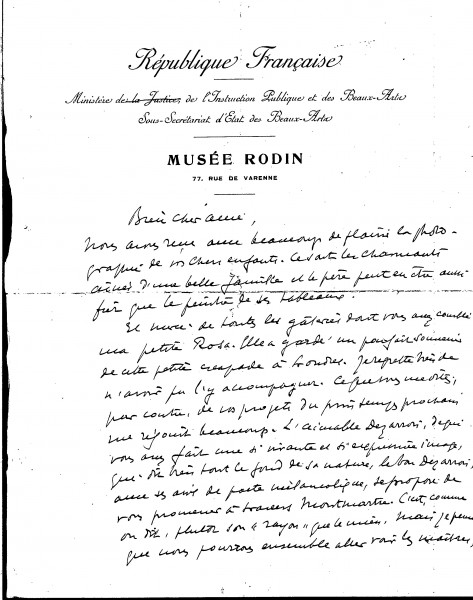 République Française
Ministère de la Justice, de l'Instruction Publique et des Beaux-Arts
Sous-Secrétariat d'État des Beaux-Arts
MUSÉE RODIN
77, RUE DE VARENNE
Bien cher ami,
Nous avons reçu avec beaucoup de plaisir la photo-
graphie de vos chers enfants. Ce sont les charmants
aînés d'une belle famille et le père peut en être aussi
fier que le peintre de ses tableaux.
Et merci de toutes les gâteries dont vous avez comblé
ma petite Rosa. Elle a gardé un parfait souvenir
de cette petite escapade à Londres. Je regrette très de
n'avoir pu l'y accompagner. Ce que vous me dites,
par contre, de vos projets du printemps prochain
me réjouit beaucoup. L'aimable Desarrois, de qui
vous avez fait une si vivante et si expressive image,
qui dit très tout le fond de sa nature, le bon Desarrois,
avec ses airs de poète mélancolique, se propose de
vous promener à travers Montmartre. C'est, comme
on dit, plutôt son "rayon" que le mien. Mais je pense
que nous pourrons ensemble aller voir les maîtres,